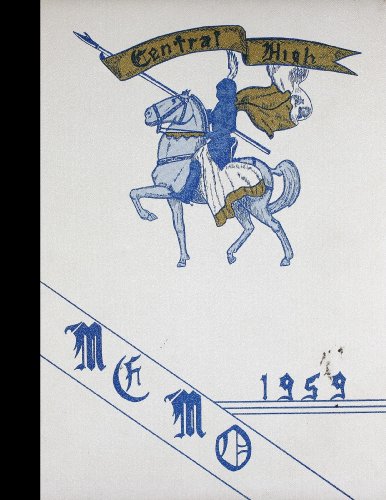 Central High
MEMO
1959